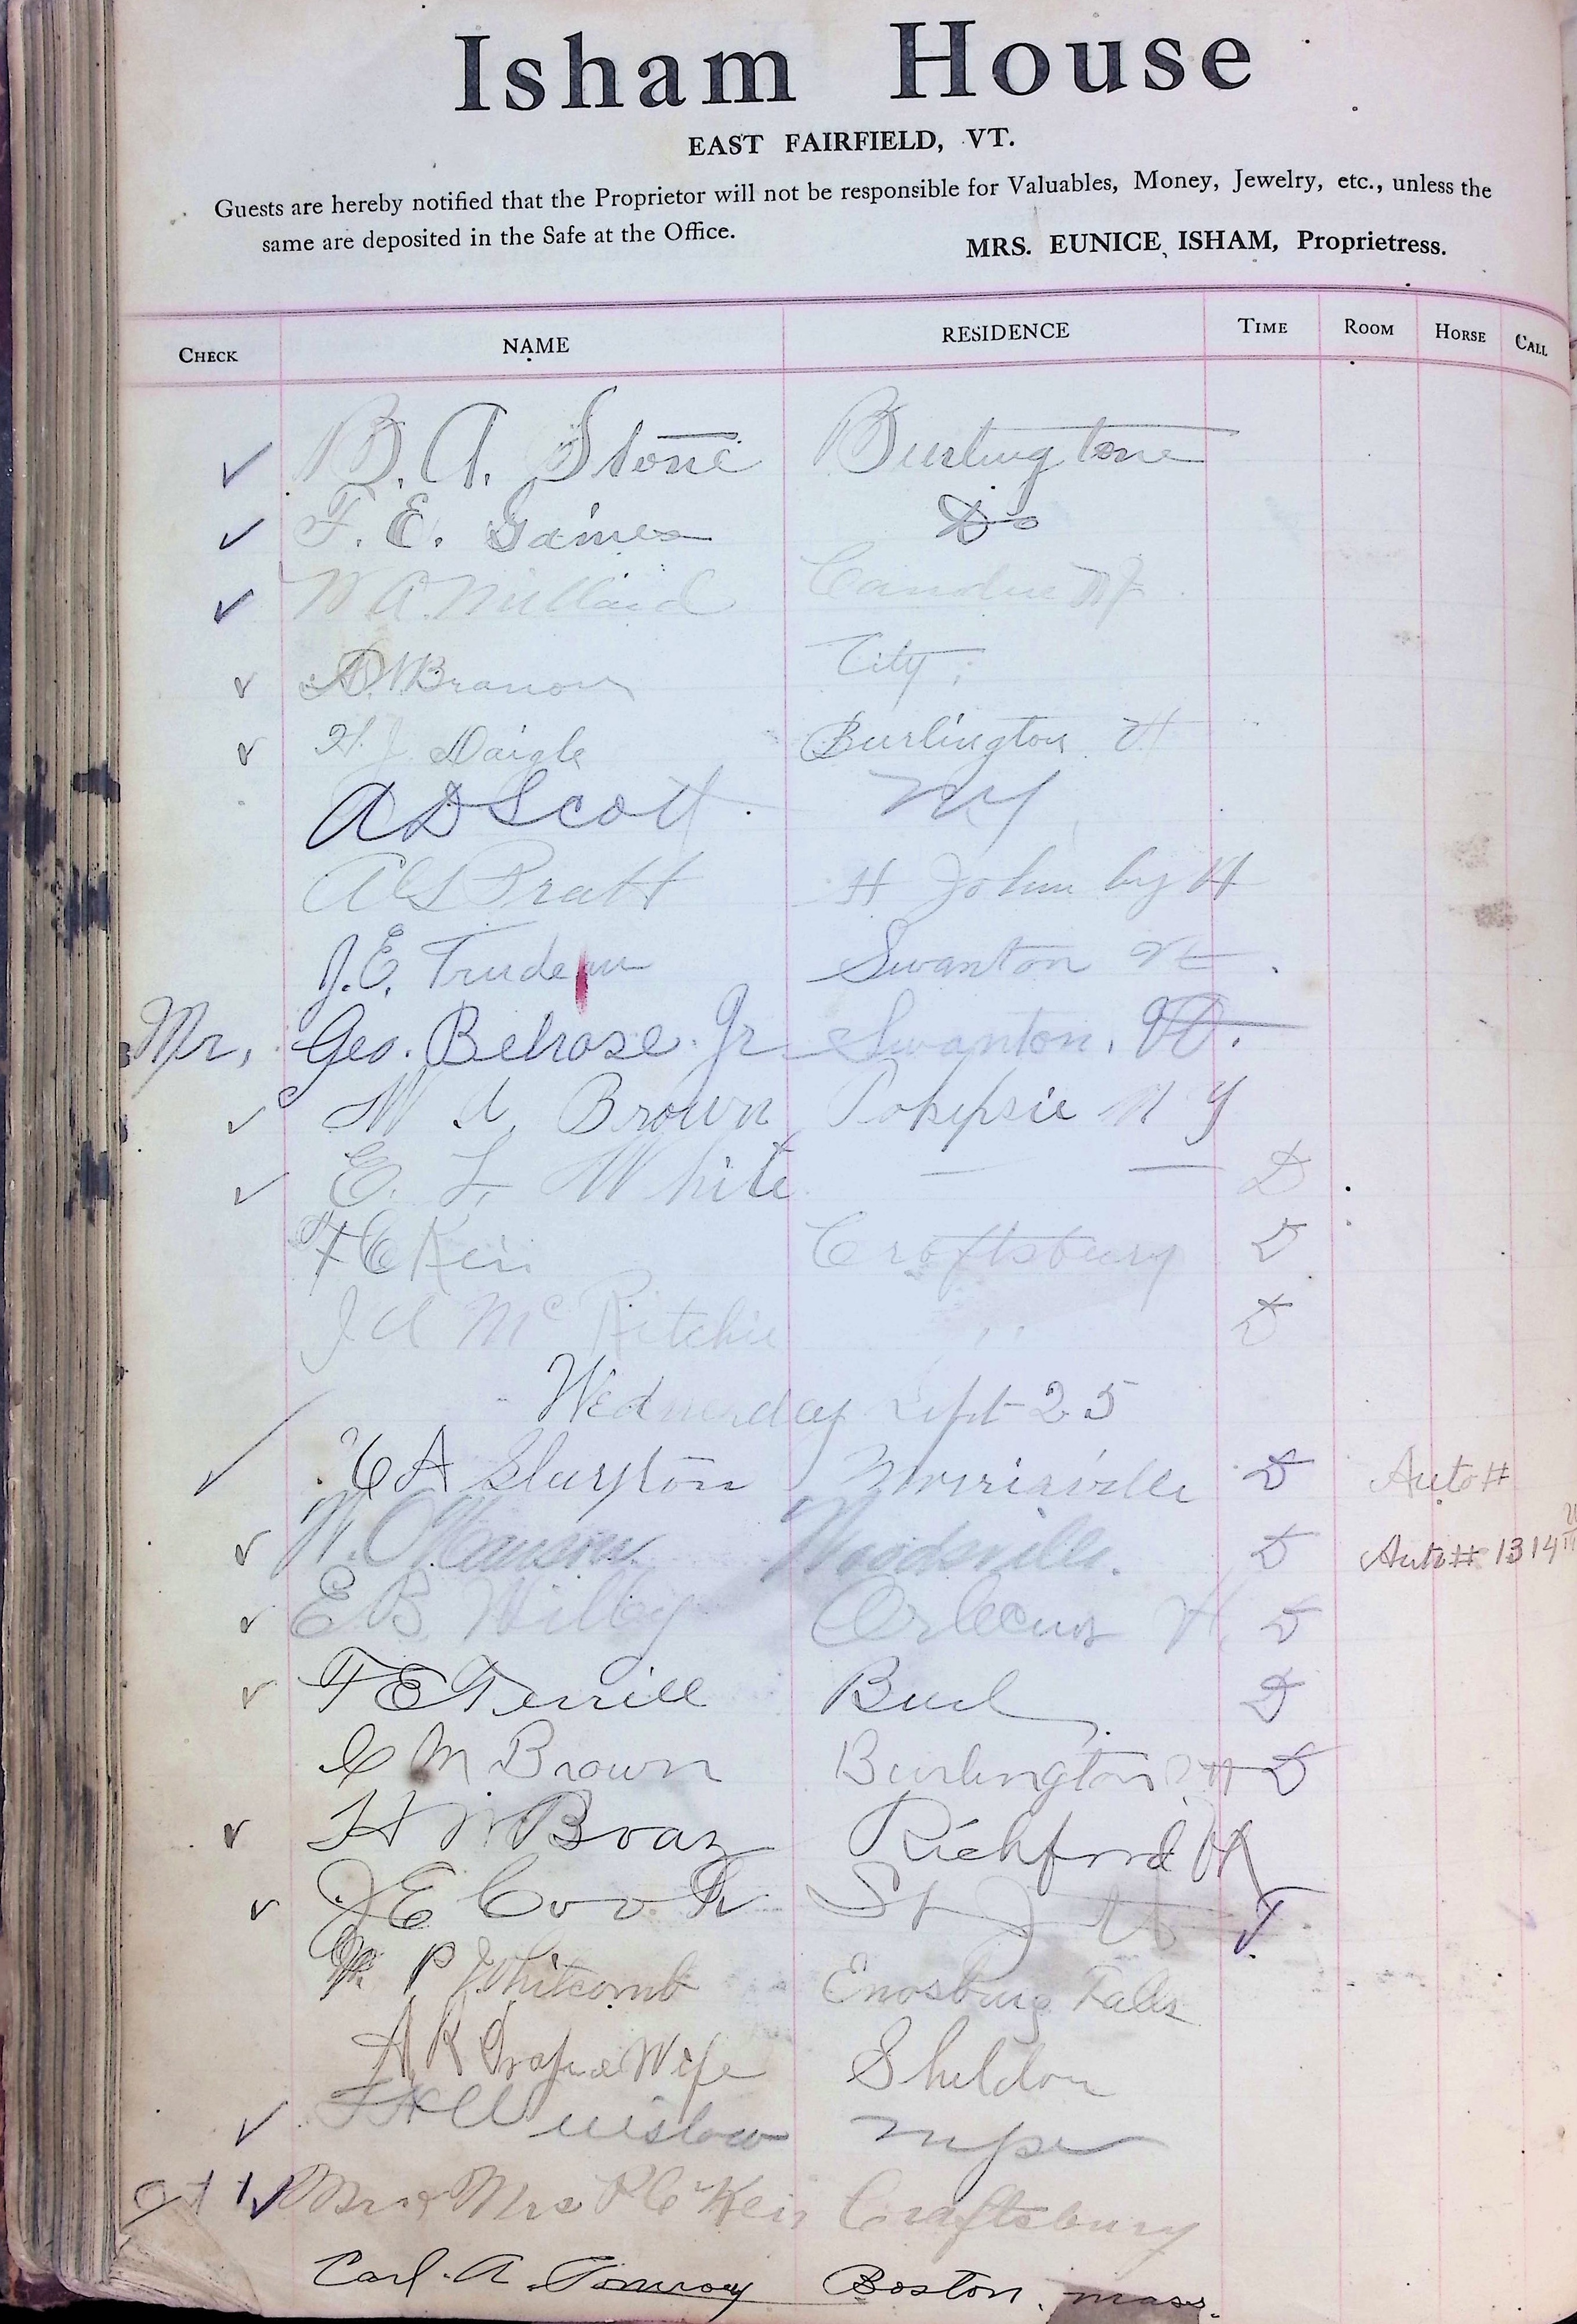 Isham House
EAST FAIRFIELD, VT.
Guests are hereby notified that the Proprietor will not be responsible for Valuables, Money, Jewelry, etc., unless the
same are deposited in the Safe at the Office.
MRS. EUNICE ISHAM, Proprietress.
CHECK NAME RESIDENCE TIME ROOM HORSE CALL
✓ B. A. Stone Burlington
✓ F. E. Gaines Do
✓ W A Millard
✓ Branon City
✓ H. J. Daigle Burlington Vt
A D Scott NY
Pratt St Johnsby Vt
J. E. Trudeau Swanton Vt.
Mr. Geo. Belrose Jr Swanton, Vt.
✓ Brown Pokepsie N Y
✓ E. L. White — — D
F E Keir Craftsbury D
J A McRitchie " D
Wednesday Sept 25
✓ A Slayton Morrisville D Auto #
✓ Woodsville. D Auto # 1314
✓ E B Wilby Orleans Vt D
✓ F E Terrill Burl D
C M Brown Burlington Vt D
✓ H W Boaz Richford Vt
✓ J E Cook St J Vt T
P Whitcomb Enosburg Falls
A K & Wife Sheldon
✓ Winslow
Mr & Mrs Keir Craftsbury
Carl. A. Boston, mass.